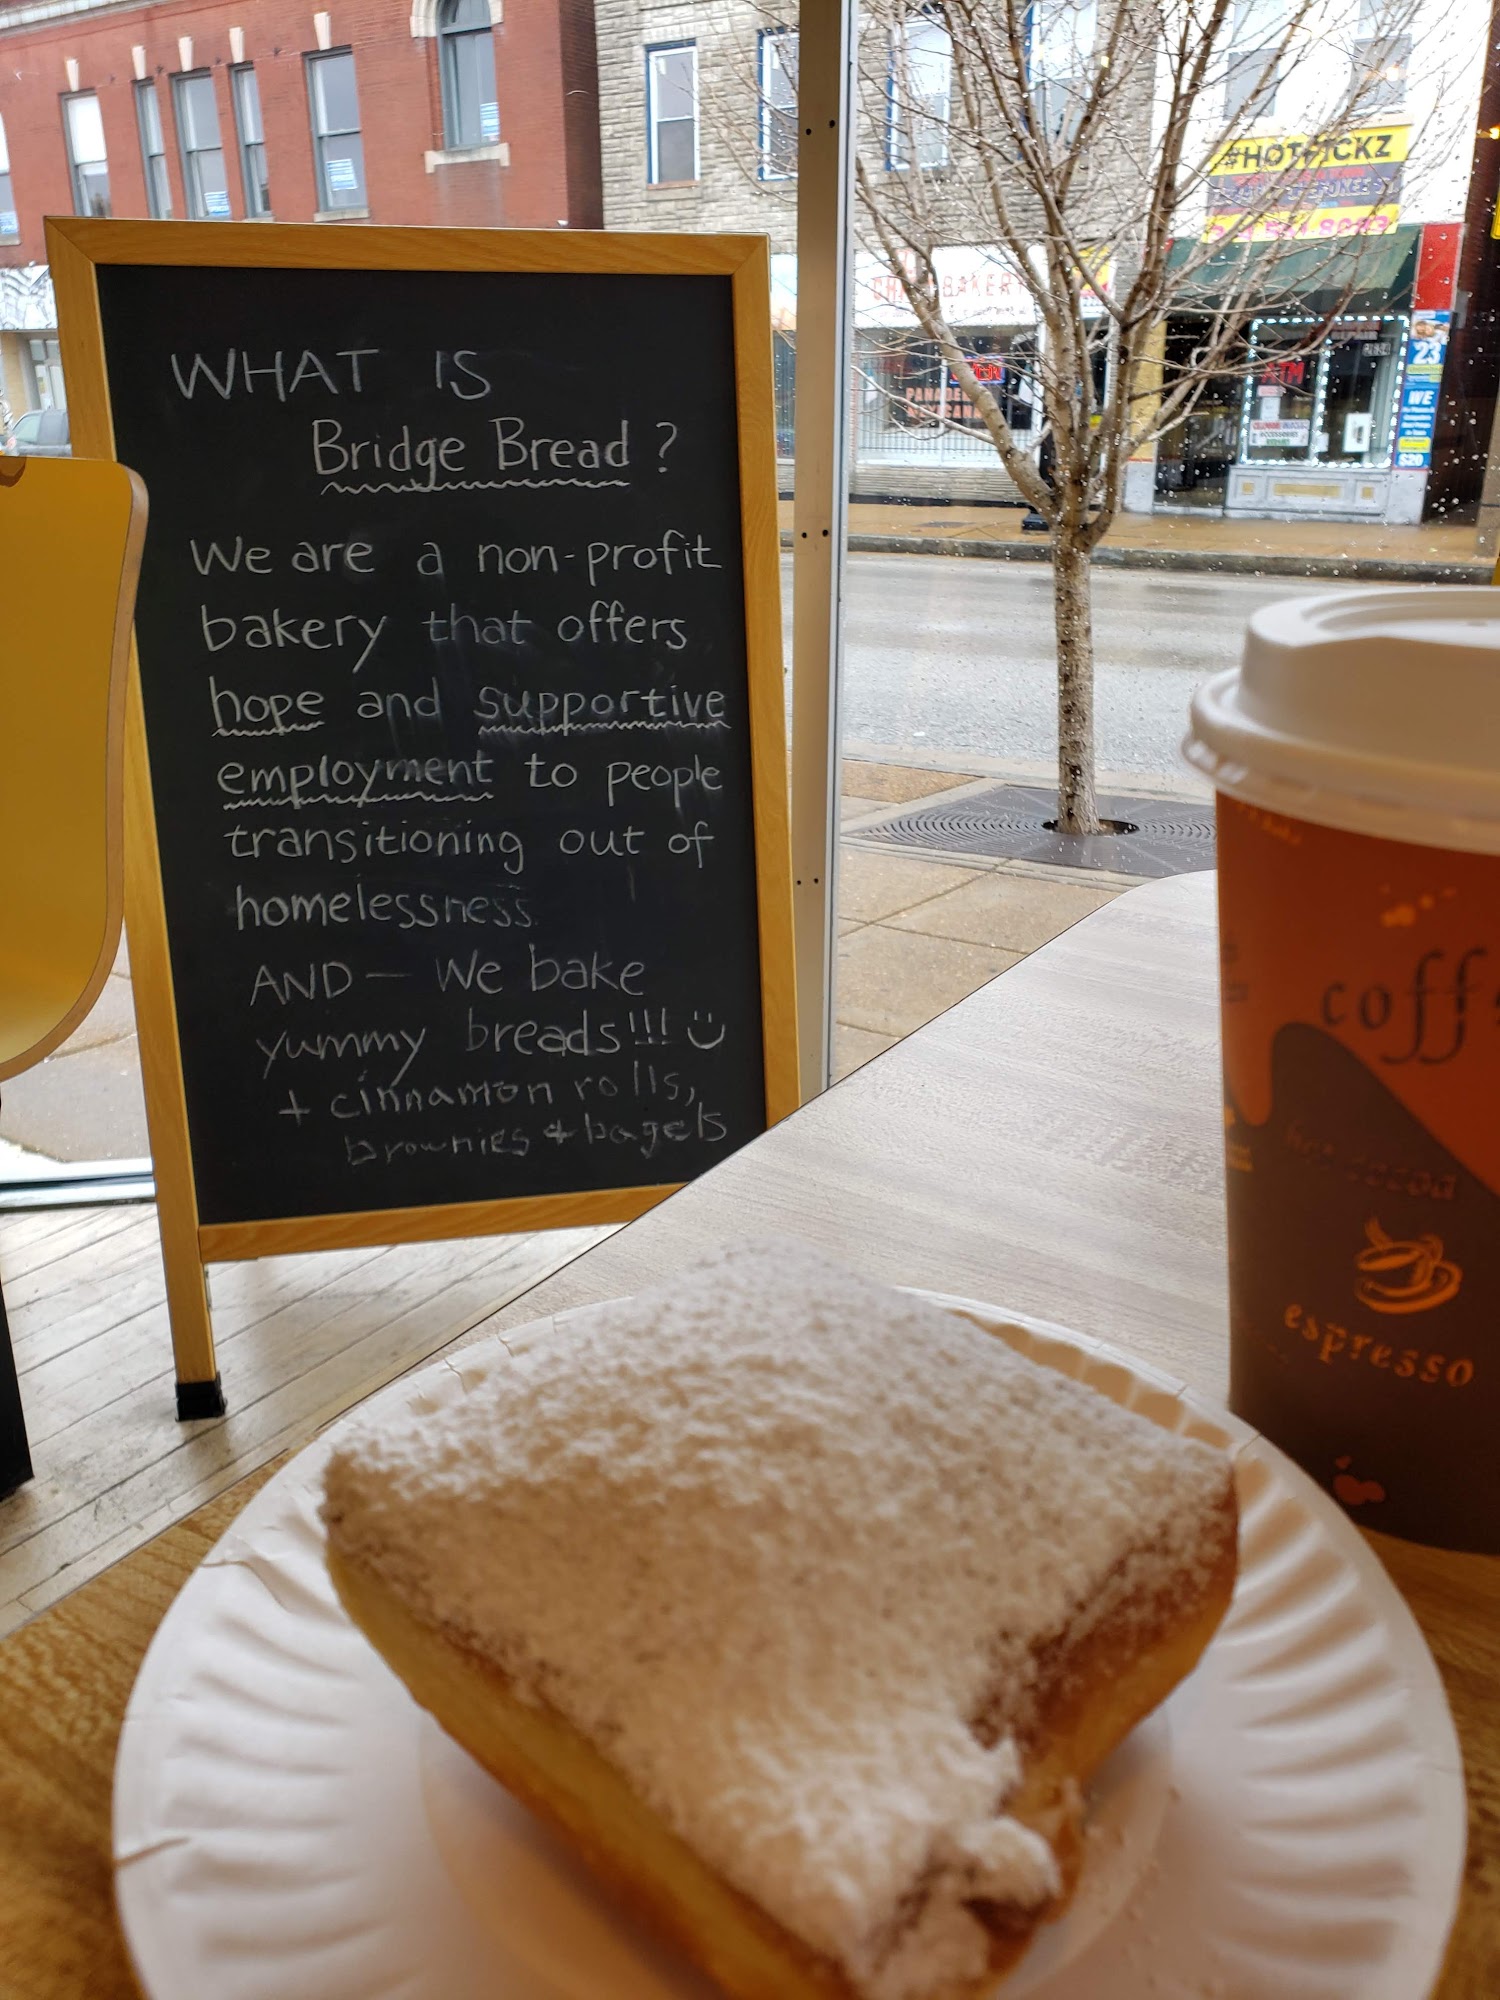 WHAT IS
Bridge Bread?
We are a non-profit
bakery that offers
hope and supportive
employment to people
transitioning out of
homelessness.
AND — We bake
yummy breads!!! :)
+ cinnamon rolls,
brownies + bagels
BAKERY
ATM
23
WE
$20
hot cocoa
espresso